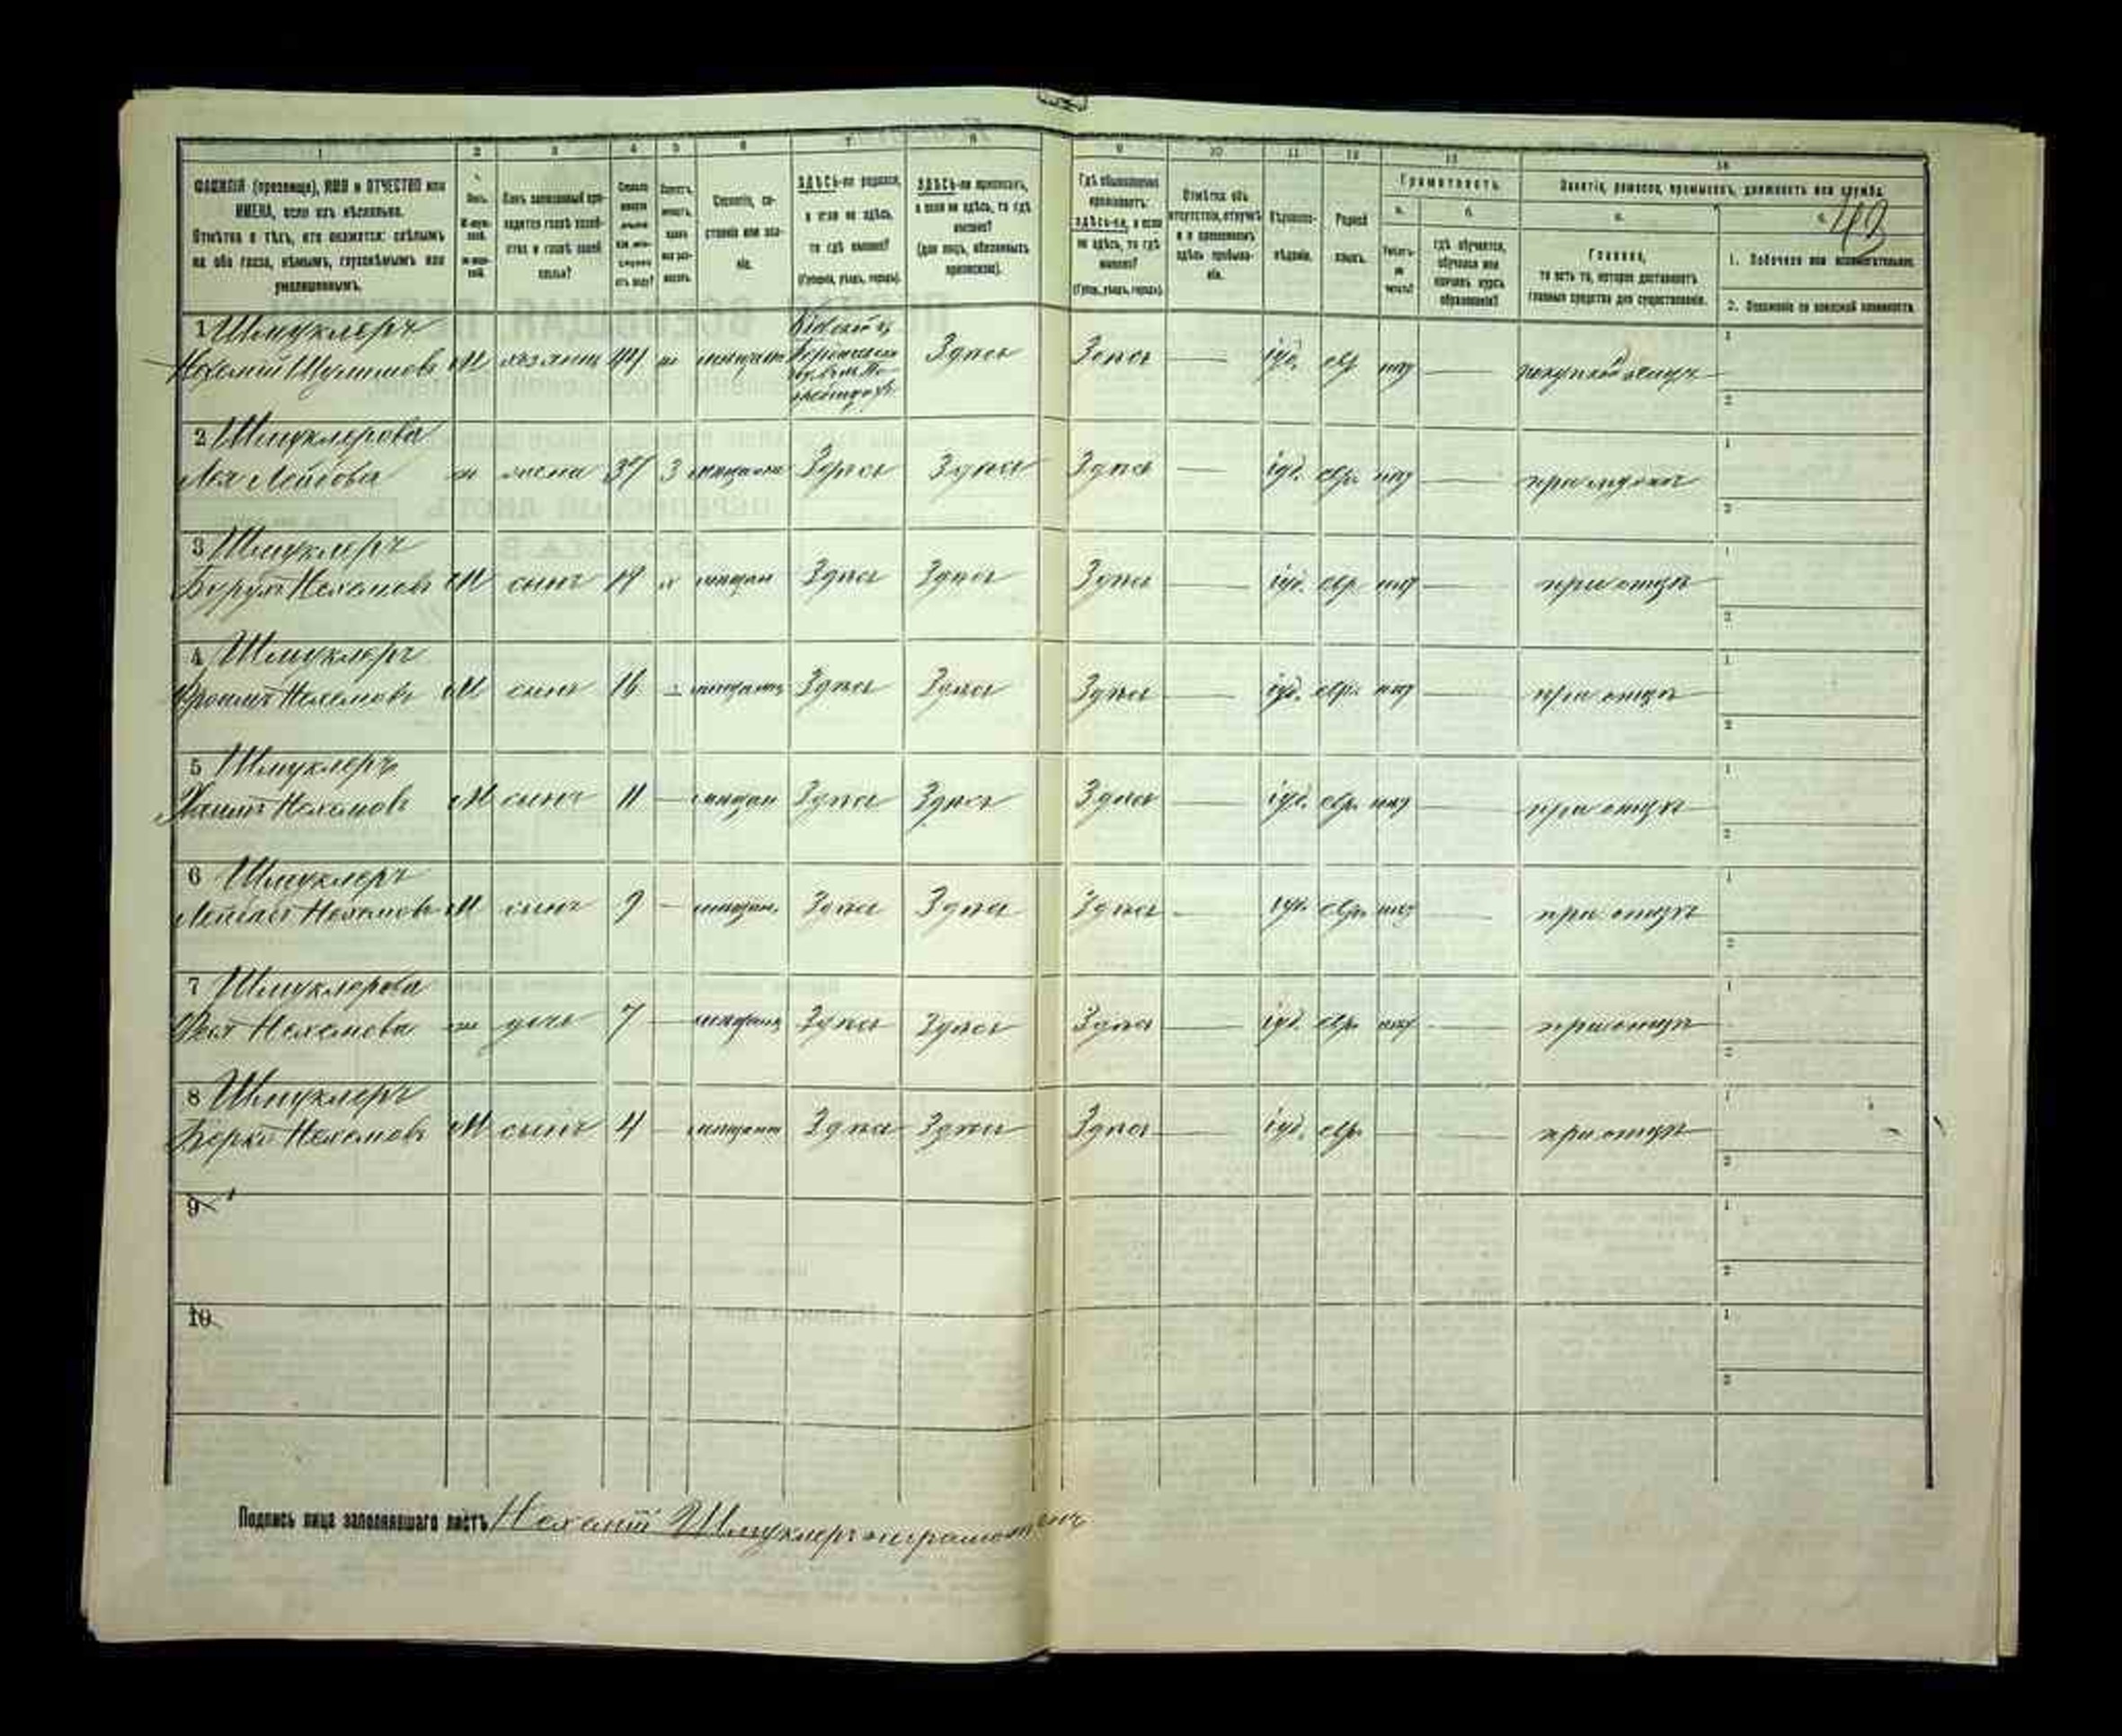 1 2 3 4 5 6 7 8 9 10 11 12 13 14
ФАМИЛІЯ (прозвище), ИМЯ и ОТЧЕСТВО или
ИМЕНА, если ихъ нѣсколько.
Отмѣтка о тѣхъ, кто окажется: слѣпымъ
на оба глаза, нѣмымъ, глухонѣмымъ или
умалишеннымъ.
Полъ.
М-муж-
ской.
Ж-жен-
скій.
Какъ записанный при-
ходится главѣ хозяй-
ства и главѣ своей
семьи?
Сколько
минуло
лѣтъ
или мѣ-
сяцевъ
отъ роду?
Холостъ,
женатъ,
вдовъ
или раз-
веденъ.
Сословіе, со-
стояніе или зва-
ніе.
ЗДѢСЬ-ли родился,
а если не здѣсь,
то гдѣ именно?
(Губернія, уѣздъ, городъ).
ЗДѢСЬ-ли приписанъ,
а если не здѣсь, то гдѣ
именно?
(для лицъ, обязанныхъ
припискою).
Гдѣ обыкновенно
проживаетъ:
здѣсь-ли, а если
не здѣсь, то гдѣ
именно?
(Губерн., уѣздъ, городъ).
Отмѣтка объ
отсутствіи, отлучкѣ
и о временномъ
здѣсь пребыва-
ніи.
Вѣроиспо-
вѣданіе.
Родной
языкъ.
Грамотность.
а.
Умѣетъ-
ли
читать?
б.
гдѣ обучается,
обучался или
кончилъ курсъ
образованія?
Занятіе, ремесло, промыселъ, должность или служба.
а.
Главное,
то есть то, которое доставляетъ
главныя средства для существованія.
б.
1. Побочное или вспомогательное.
2. Положеніе по воинской повинности.
1 Шмуклеръ
М хозяинъ 44 ж мѣщан Здѣсь Здѣсь — іуд. евр. — 1 2
2 Шмуклерова
Лея Лейбова ж жена 37 З Здѣсь Здѣсь Здѣсь — іуд. евр. — при мужѣ 1 2
3 Шмуклеръ
Бурухъ Нехемовъ М сынъ 19 х мѣщан Здѣсь Здѣсь Здѣсь — іуд. евр. — при отцѣ 1 2
4 Шмуклеръ
Фроимъ Нехемовъ М сынъ 16 мѣщан Здѣсь Здѣсь Здѣсь — іуд. евр. — при отцѣ 1 2
5 Шмуклеръ
Хаимъ Нехемовъ М сынъ 11 — мѣщан Здѣсь Здѣсь Здѣсь — іуд. евр. — при отцѣ 1 2
6 Шмуклеръ
Нехемовъ М сынъ 9 — мѣщан. Здѣсь Здѣсь Здѣсь — іуд. евр. — при отцѣ 1 2
7 Шмуклерова
Нехемова ж дочь 7 — мѣщан Здѣсь Здѣсь Здѣсь — іуд. евр. — при отцѣ 1 2
8 Шмуклеръ
Берко Нехемовъ М сынъ 4 — мѣщан Здѣсь Здѣсь Здѣсь — іуд. евр. — — при отцѣ 1 2
9 1 2
10 1 2
Подпись лица заполнявшаго листъ Шмуклеръ неграмотенъ